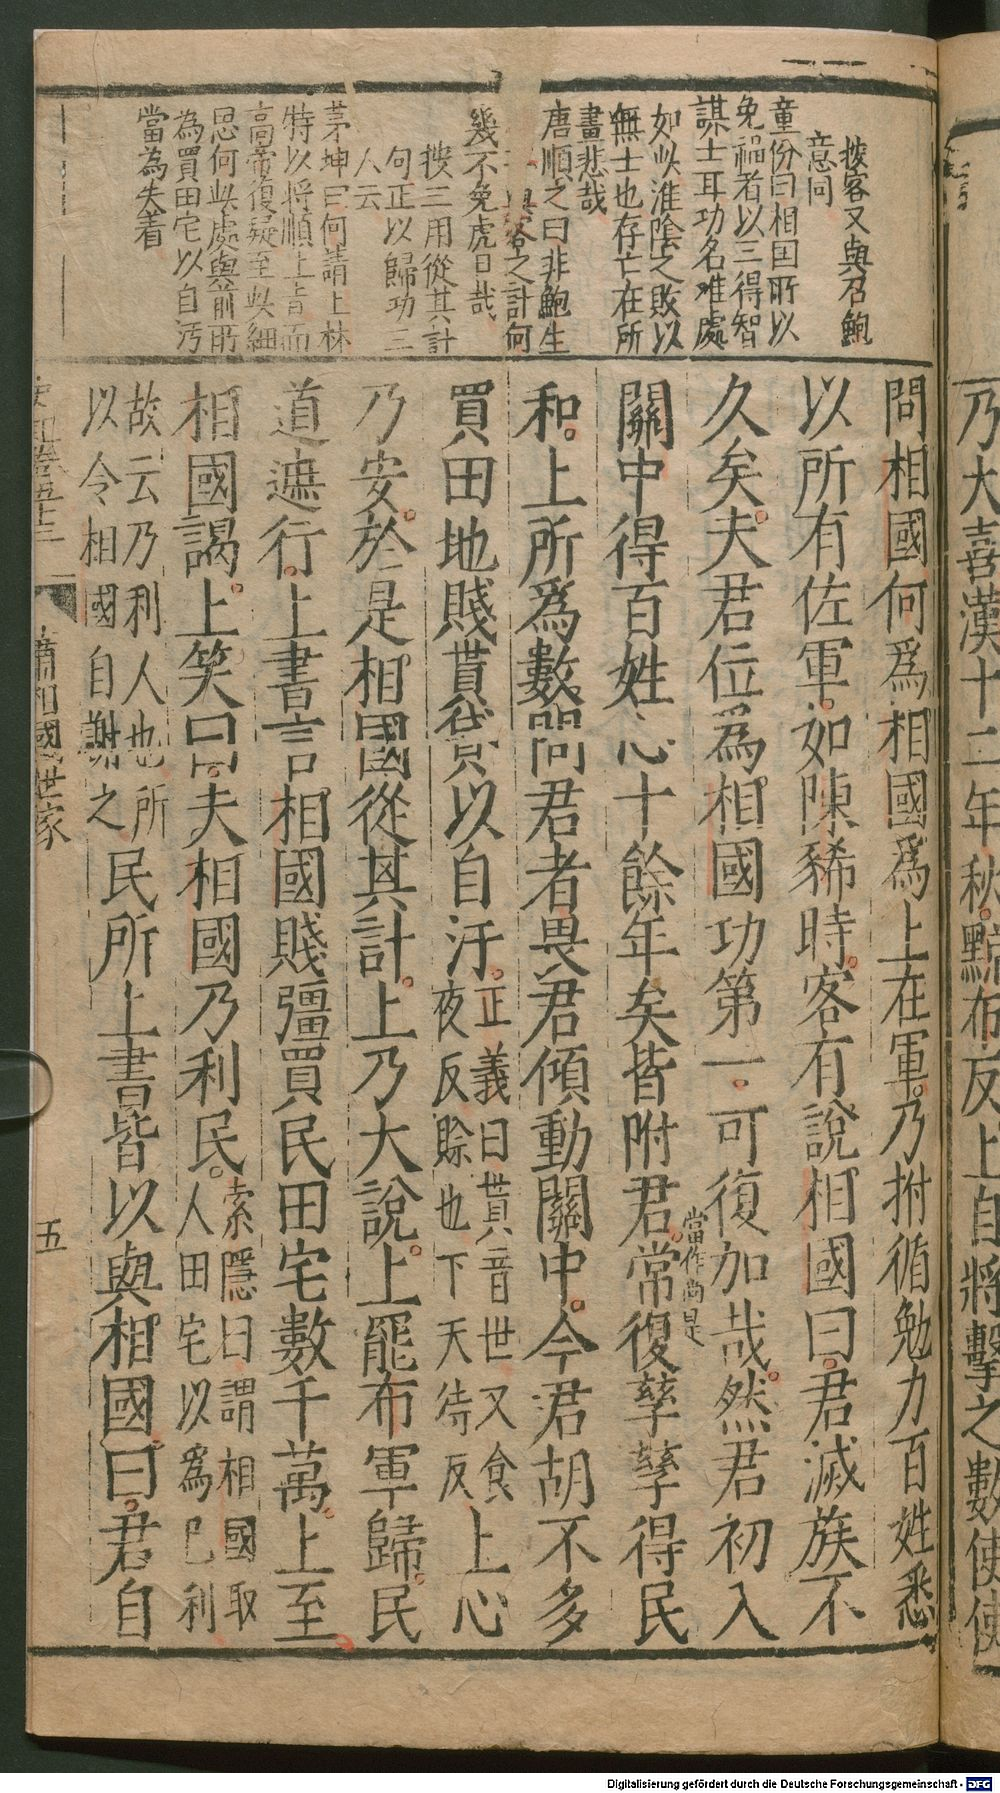 乃大喜漢十二年秋黥布反上自將擊之數使使
按客又與召鮑
意同
童份曰相国所以
免禍者以三得智
謀士耳功名难處
如此淮陰之敗以
無士也存亡在所
畫悲哉
唐順之曰非鮑生
與客之計何
幾不免虎口哉
按三用從其計
句正以歸功三
人云
茅坤曰何請上林
特以将順上旨而
高帝復疑至此細
思何此處與前所
為買田宅以自汚
當為失着
問相國何爲相國爲上在軍乃拊循勉力百姓悉
以所有佐軍如陳豨時客有說相國曰君滅族不
久矣夫君位爲相國功第一可復加哉然君初入
當作尚是
關中得百姓心十餘年矣皆附君常復孳孳得民
和上所爲數問君者畏君傾動關中今君胡不多
買田地賤貰貸以自汙正義曰貰音世又食
夜反賒也下天待反上心
乃安於是相國從其計上乃大說上罷布軍歸民
道遮行上書言相國賤彊買民田宅數千萬上至
相國謁上笑曰夫相國乃利民索隱曰謂相國取
人田宅以爲已利
故云乃利人也所
以令相國自謝之民所上書皆以與相國曰君自
史記卷五十三 蕭相國世家 五
Digitalisierung gefördert durch die Deutsche Forschungsgemeinschaft - DFG